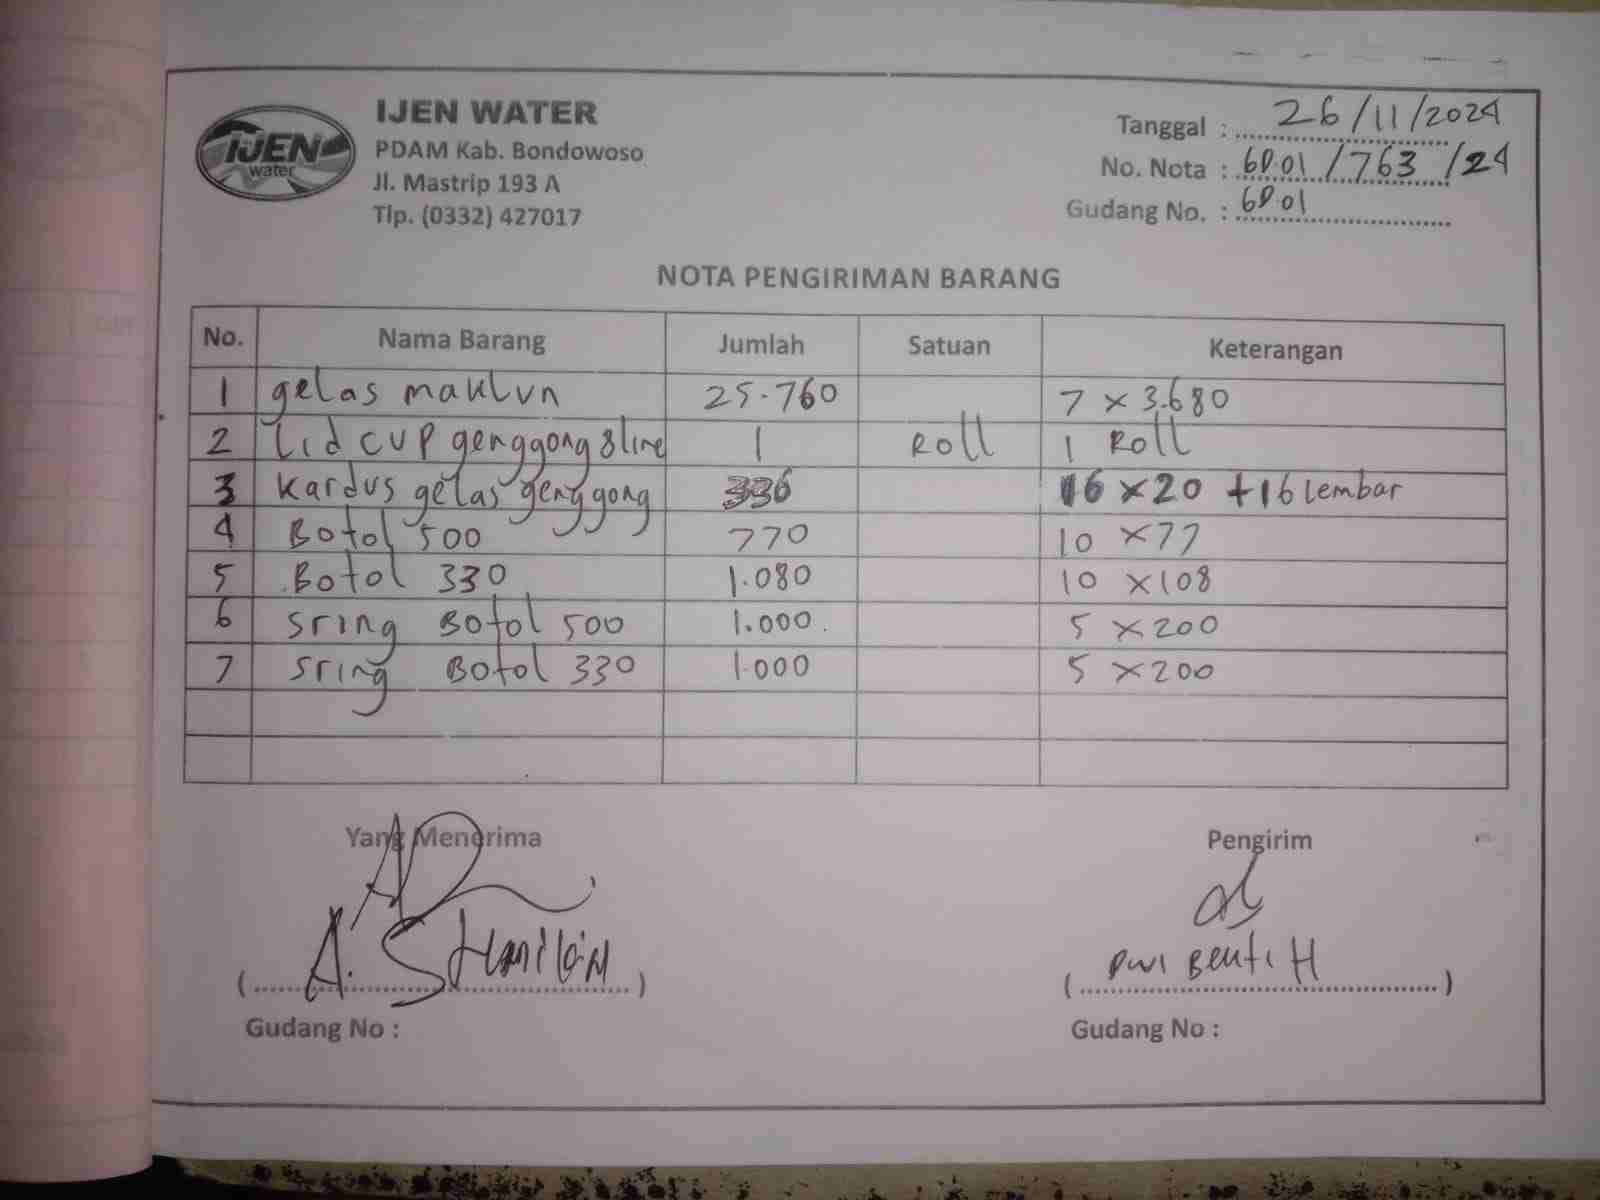 IJEN water
IJEN WATER
PDAM Kab. Bondowoso
Jl. Mastrip 193 A
Tlp. (0332) 427017
Tanggal : 26/11/2024
No. Nota : 6D.01 /763 /24
Gudang No. : 6D.01
NOTA PENGIRIMAN BARANG
No. Nama Barang Jumlah Satuan Keterangan
1 gelas maklun 25.760 7 x 3.680
2 Lid CUP genggong 8 line 1 Roll 1 Roll
3 Kardus gelas genggong 336 16 x 20 + 16 lembar
4 Botol 500 770 10 x 77
5 Botol 330 1.080 10 x 108
6 sring Botol 500 1.000. 5 x 200
7 sring Botol 330 1.000 5 x 200
Yang Menerima Pengirim
( A. ) ( H )
Gudang No : Gudang No :